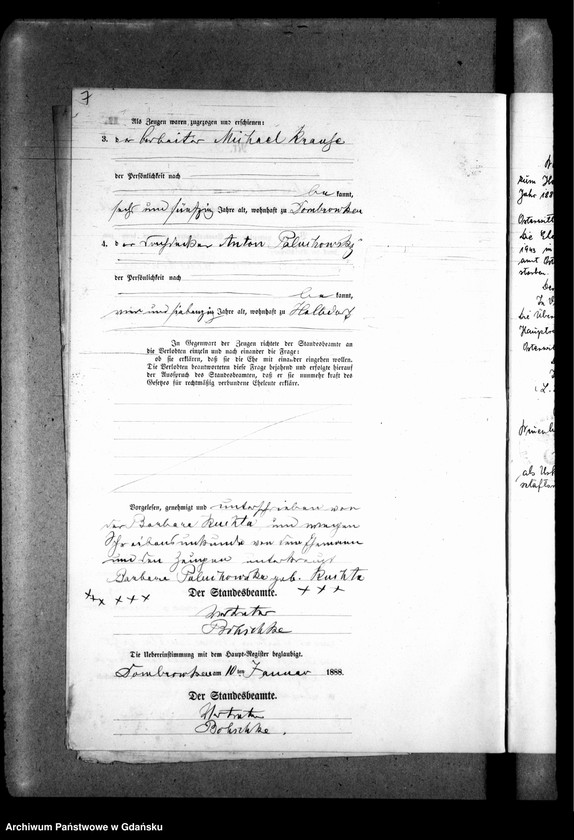 7
Als Zeugen waren zugezogen und erschienen:
3. der Arbeiter Michael Krause
der Persönlichkeit nach
be kannt,
sechs und fünfzig Jahre alt, wohnhaft zu Dombrowken
4. der Anton Paluchowsky
der Persönlichkeit nach
be kannt,
und siebenzig Jahre alt, wohnhaft zu Halbdorf
In Gegenwart der Zeugen richtete der Standesbeamte an
die Verlobten einzeln und nach einander die Frage:
ob sie erklären, daß sie die Ehe mit einander eingehen wollen.
Die Verlobten beantworteten diese Frage bejahend und erfolgte hierauf
der Ausspruch des Standesbeamten, daß er sie nunmehr kraft des
Gesetzes für rechtmäßig verbundene Eheleute erkläre.
Vorgelesen, genehmigt und unterschrieben von
der Barbara Kuchta und wegen
Schreibensunkunde von dem Ehemann
und den Zeugen unterkreuzt
Barbara Paluchowska geb. Kuchta
+++ +++ +++
Der Standesbeamte.
Vertreter
Böhschke
Die Uebereinstimmung mit dem Haupt-Register beglaubigt.
Dombrowken am 10 ten Januar 1888.
Der Standesbeamte.
Vertreter
Böhschke.
zum
Jahr 188
die
1943 in
amt
storben.
Haupt
als
Archiwum Państwowe w Gdańsku